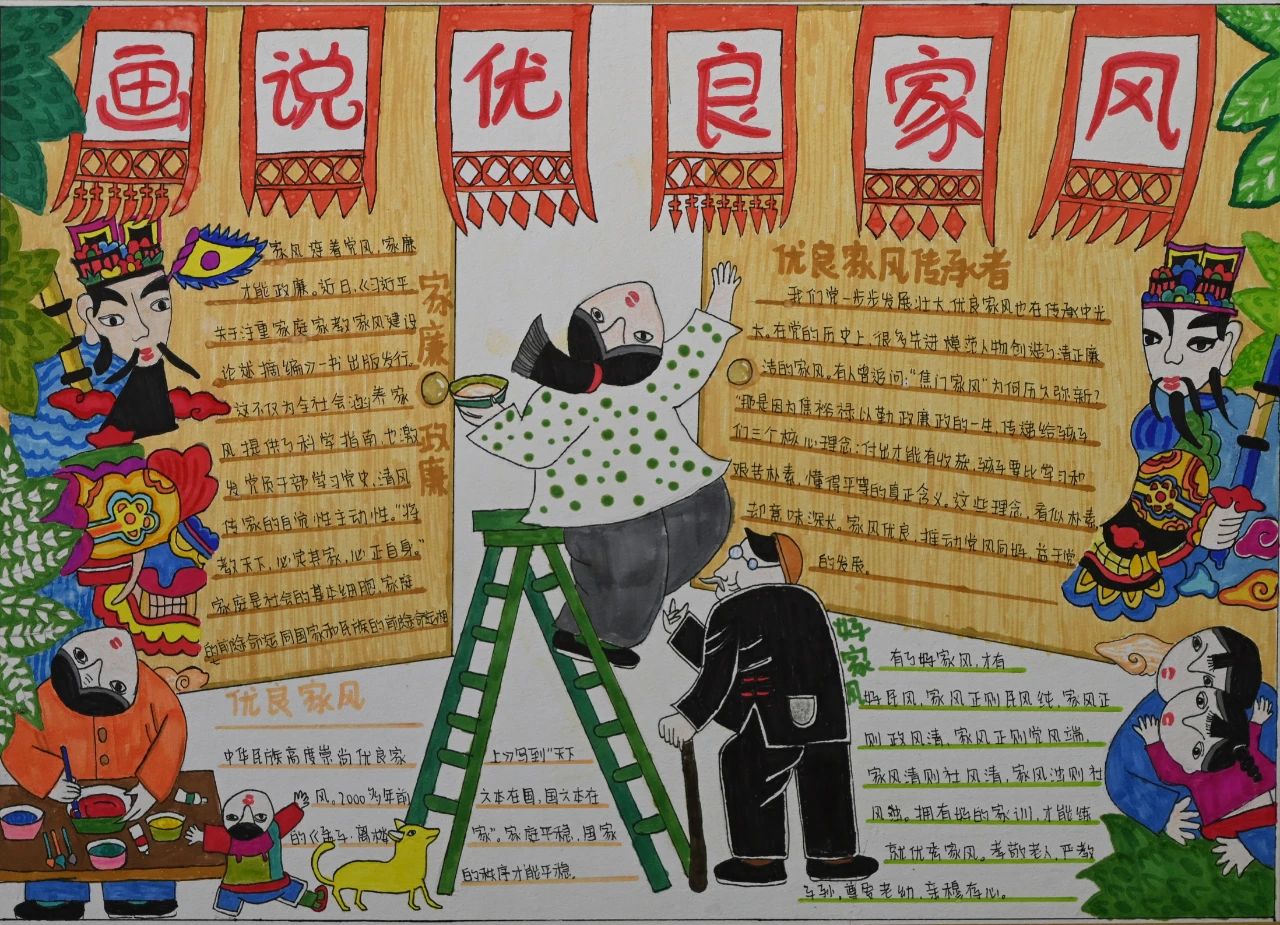 画说优良家风
家廉政廉
家风连着党风，家廉
才能政廉。近日，《习近平
关于注重家庭家教家风建设
论述摘编》一书出版发行。
这不仅为全社会涵养家
风提供了科学指南，也激
发党员干部学习党史，清风
传家的自觉性主动性。“将
教天下，必定其家，必正自身。”
家庭是社会的基本细胞，家庭
的前途命运同国家和民族的前途命运
优良家风传承者
我们党一步步发展壮大，优良家风也在传承中光
大。在党的历史上，很多先进模范人物创造了清正廉
洁的家风。有人曾追问：“焦门家风”为何历久弥新？
“那是因为焦裕禄以勤政廉政的一生，传递给孩子
们三个核心理念：付出才能有收获，孩子要比学习和
艰苦朴素，懂得平等的真正含义。这些理念，看似朴素，
却意味深长。家风优良，推动党风向好，益于党
的发展。
优良家风
中华民族高度崇尚优良家
风。2000多年前
的《孟子·离娄
上》写到“天下
之本在国，国之本在
家”。家庭平稳，国家
的秩序才能平稳。
好家风
有了好家风，才有
好民风，家风正则民风纯，家风正
则政风清，家风正则党风端，
家风清则社风清，家风浊则社
风浊。拥有好的家训，才能练
就优秀家风。孝敬老人，严教
子孙，尊爱老幼，亲穆存心。